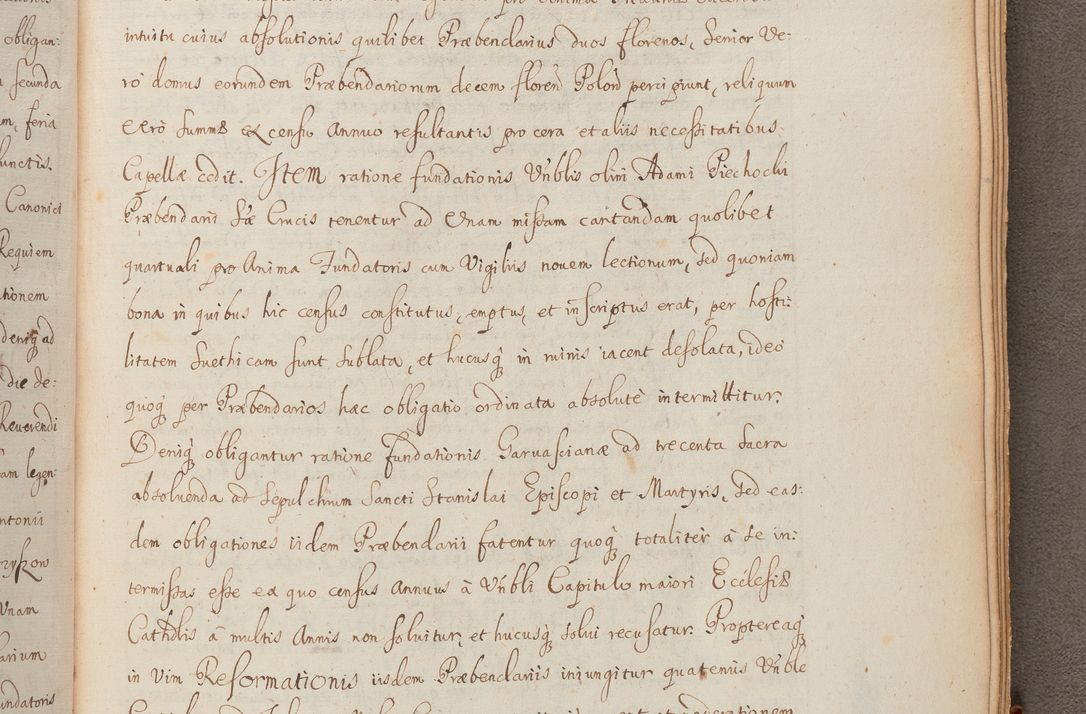 obligan:
secunda
feria
functis.
Canonici
Requiem
ationem
deniq ad
die de:
Reverendi
legen:
Vnam
arium
undatoris
intuitu cuius absolutionis quilibet Præbendarius duos florenos, Senior Ve:
rò domus eorundem Præbendariorum decem floren Polon percipiunt, reliquum
verò summæ ex censu annuo resultantis pro cera et aliis necessitatibus
Capellæ cedit. Item ratione fundationis Vnblis olim Adami Piechocki
Præbendarii Sæ Crucis tenentur ad Vnam missam cantandam quolibet
quartuali pro Anima Fundatoris cum Vigiliis novem lectionum, sed quoniam
bona in quibus hic census constitutus, emptus, et inscriptus erat, per hosti:
litatem Suethicam sunt sublata, et hucusq in ruinis iacent desolata, ideo
quoq per Præbendarios hæc obligatio ordinata absolutè intermittitur.
Deniq obligantur ratione fundationis Garvascianæ ad trecenta sacra
absolvenda ad Sepulchrum Sancti Stanislai Episcopi et Martyris, sed eas:
dem obligationes iidem Præbendarii fatentur quoq totalitèr à se in:
termissas esse ex quo census annuus à Vnbli Capitulo maiori Ecclesiæ
Cathdlis à multis Annis non solvitur, et hucusq solvi recusatur. Proptereaq
in Vim Reformationis iisdem Præbendariis iniungitur quatenus Vnble